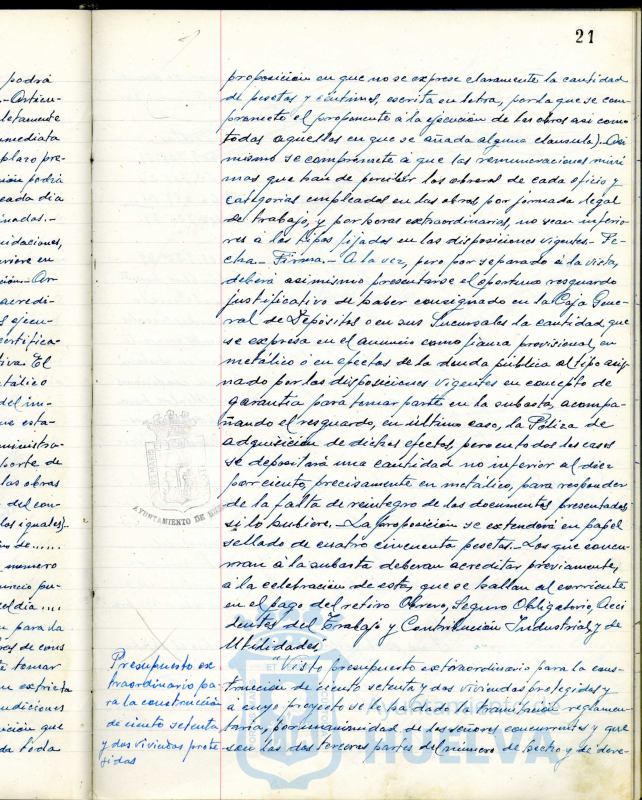 21
podrá
letamente
nmediata
plazo pre-
ción podrá
cada día
nadas.-
uidaciones,
acredi-
s ejecu-
certifica-
tiva. El
tálico
del im-
ue esta-
ministra-
porte de
las obras
del con-
los iguales).
vo de ......
numero
uncio pu-
el día ....
n para la
tomar
n extricta
ndiciones
ición que
da toda
proposición en que no se exprese claramente la cantidad
de pesetas y céntimos, escrita en letra, por la que se com-
promete el proponente a la ejecución de las obras así como
todas aquellas en que se añada alguna clausula).- Asi
mismo se compromete a que las remuneraciones míni
mas que han de percibir los obreros de cada oficio y
categorias empleados en las obras por jornada legal
de trabajo, y por horas extraordinarias, no sean inferio
res a los tipos fijados en las disposiciones vigentes.- Fe-
cha.- Firma.- A la vez, pero por separado a la vista,
deberá asimismo presentarse el oportuno resguardo
justificativo de haber consignado en la Caja Gene-
ral de Depósitos o en sus Sucursales la cantidad que
se expresa en el anuncio como fianza provisional, en
metálico o en efectos de la deuda pública al tipo asig
nado por las disposiciones vigentes en concepto de
garantia para tomar parte en la subasta, acompa-
ñando el resguardo, en último caso, la Póliza de
adquisición de dichos efectos, pero en todos los casos
se depositará una cantidad no inferior al diez
por ciento, precisamente en metálico, para responder
de la falta de reintegro de los documentos presentados,
si lo hubiere.- La proposición se extenderá en papel
sellado de cuatro cincuenta pesetas.- Los que concu-
rran á la subasta deberan acreditar previamente,
a la celebración de esta, que se hallan al corriente
en el pago del retiro Obrero, Seguro Obligatorio, Acci
dentes del Trabajo y Contribución Industrial y de
Utilidades."
AYUNTAMIENTO DE
Presupuesto ex
traordinario pa-
ra la construcción
de ciento setenta
y dos viviendas prote
gidas
"Visto presupuesto extraordinario para la cons-
trucción de ciento setenta y dos viviendas protegidas y
a cuyo proyecto se le ha dado la tramitación reglamen-
taria, por unanimidad de los señores concurrentes y que
son las dos terceras partes del número de hecho y de dere-
Ayuntamiento de
HUELVA